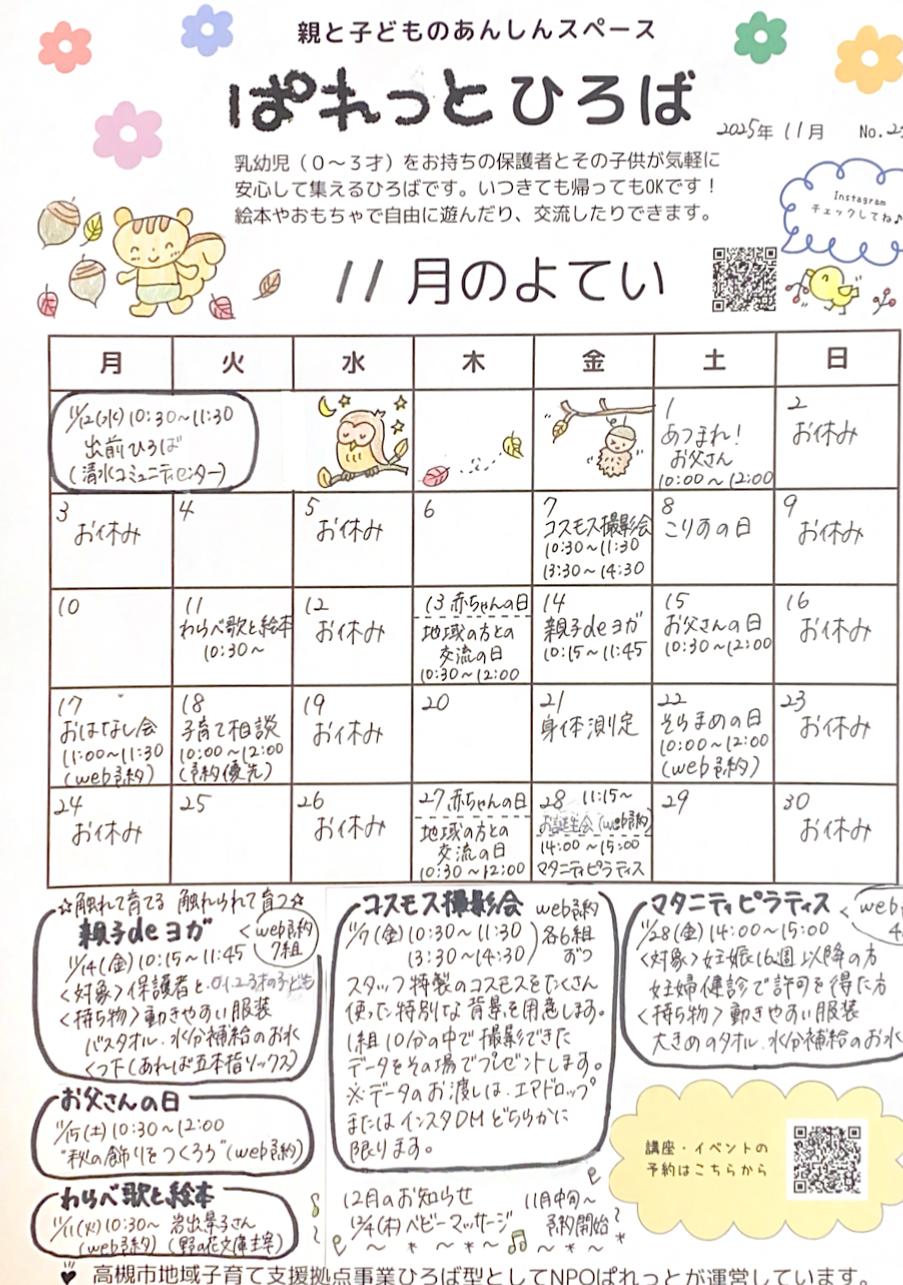 親と子どものあんしんスペース
ぱれっとひろば
2025年 11月 No.2
乳幼児（0～3才）をお持ちの保護者とその子供が気軽に
安心して集えるひろばです。いつきても帰ってもOKです！
絵本やおもちゃで自由に遊んだり、交流したりできます。
Instagram
チェックしてね♪
11月のよてい
月 火 水 木 金 土 日
11/12(水) 10:30～11:30
出前ひろば
(清水コミュニティセンター)
1
あつまれ！
お父さん
10:00～12:00
2
お休み
3
お休み
4
5
お休み
6
7
コスモス撮影会
10:30～11:30
13:30～14:30
8
こりすの日
9
お休み
10
11
わらべ歌と絵本
10:30～
12
お休み
13 赤ちゃんの日
地域の方との
交流の日
10:30～12:00
14
親子deヨガ
10:15～11:45
15
お父さんの日
10:30～12:00
16
お休み
17
おはなし会
11:00～11:30
(web予約)
18
子育て相談
10:00～12:00
(予約優先)
19
お休み
20
21
身体測定
22
そらまめの日
10:00～12:00
(web予約)
23
お休み
24
お休み
25
26
お休み
27 赤ちゃんの日
地域の方との
交流の日
10:30～12:00
28 11:15～
お誕生会(web予約)
14:00～15:00
マタニティピラティス
29
30
お休み
☆触れて育てる 触れられて育つ☆
親子deヨガ
web予約
7組
11/14(金) 10:15～11:45
<対象>保護者と0.1.2.3才の子ども
<持ち物>動きやすい服装
バスタオル.水分補給のお水
くつ下(あれば五本指ソックス)
お父さんの日
11/15(土) 10:30～12:00
"秋の飾りをつくろう"(web予約)
わらべ歌と絵本
11/11(火) 10:30～ 岩出景子さん
(web予約) (野の花文庫主宰)
コスモス撮影会 web予約
11/7(金) 10:30～11:30 各6組
13:30～14:30 ずつ
スタッフ特製のコスモスをたくさん
使った特別な背景を用意します。
1組10分の中で撮影できた
データをその場でプレゼントします。
※データのお渡しは、エアドロップ
またはインスタDMどちらかに
限ります。
12月のお知らせ
12/4(木) ベビーマッサージ
11月中旬～
予約開始
マタニティピラティス
web
11/28(金) 14:00～15:00
<対象>妊娠16週以降の方
妊婦健診で許可を得た方
<持ち物>動きやすい服装
大きめのタオル.水分補給のお水
講座・イベントの
予約はこちらから
高槻市地域子育て支援拠点事業ひろば型としてNPOぱれっとが運営しています。